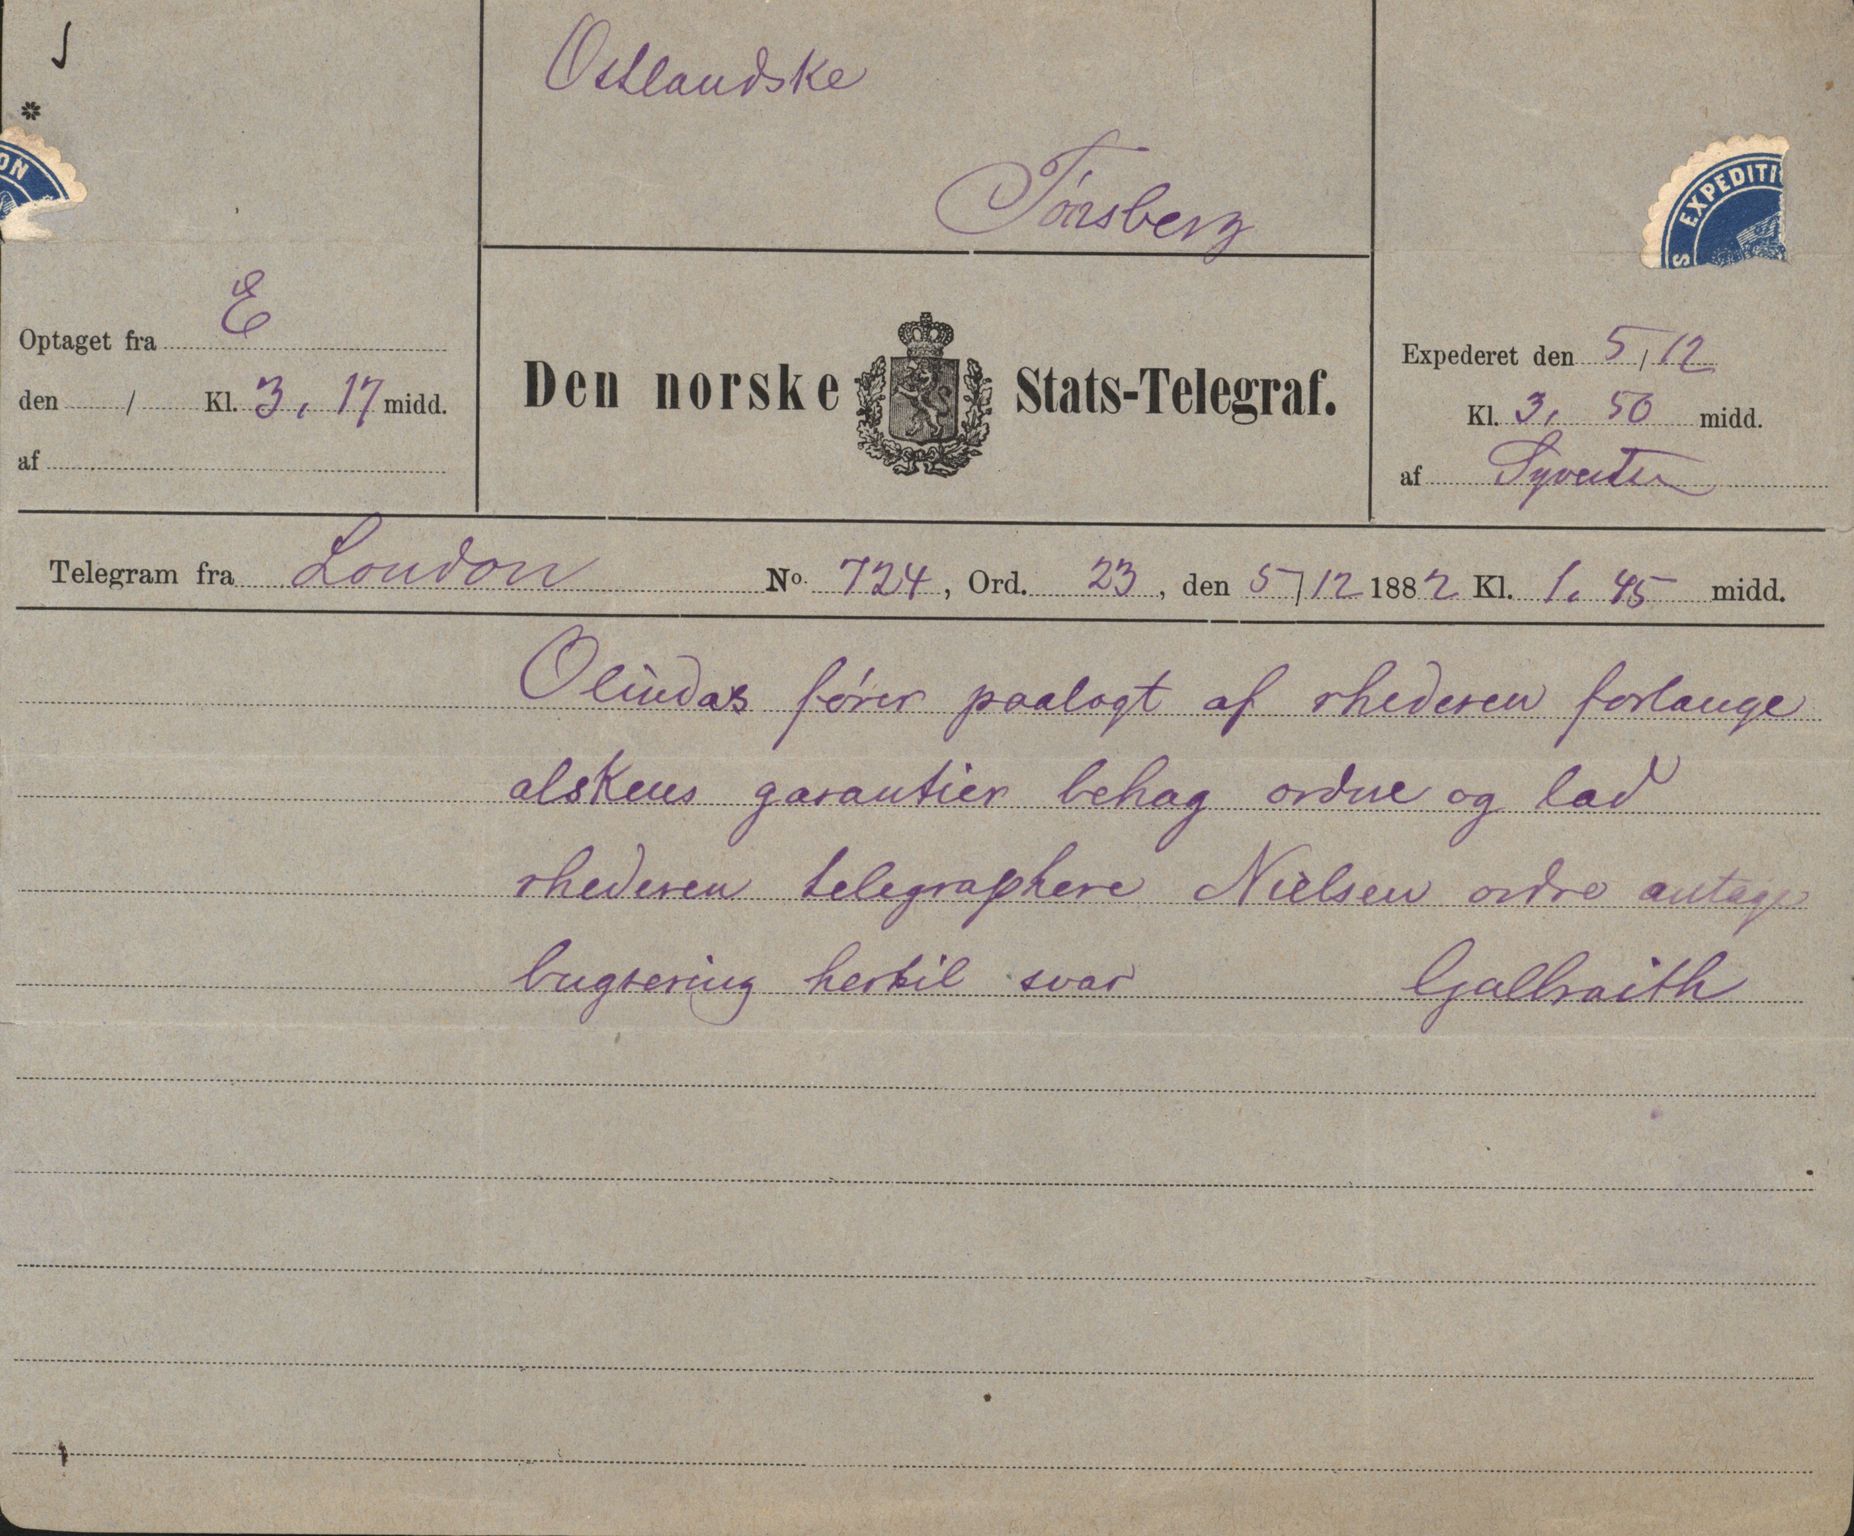 Ostlandske
Tönsberg
ON
S EXPEDITI
Optaget fra E
den / Kl. 3, 17 midd.
af
Den norske Stats-Telegraf.
Expederet den 5/12
Kl. 3, 50 midd.
af
Telegram fra London No. 724, Ord. 23, den 5/12 1882 Kl. 1, 45 midd.
Olindas fører paalagt af rhederen forlange
alskens garantier behag ordne og lad
rhederen telegraphere Nielsen ordre antage
bugsering hertil svar Galbraith